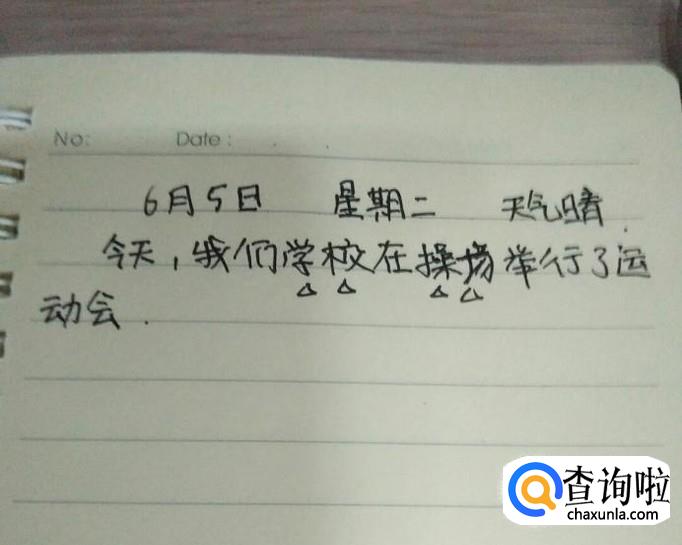 No: Date:
6月5日 星期二 天气晴.
今天,我们学校在操场举行了运
动会.
查询啦
chaxunla.com